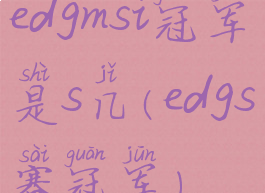 edgmsi冠军
shì jǐ
是s几(edgs
sài guān jūn
赛冠军)